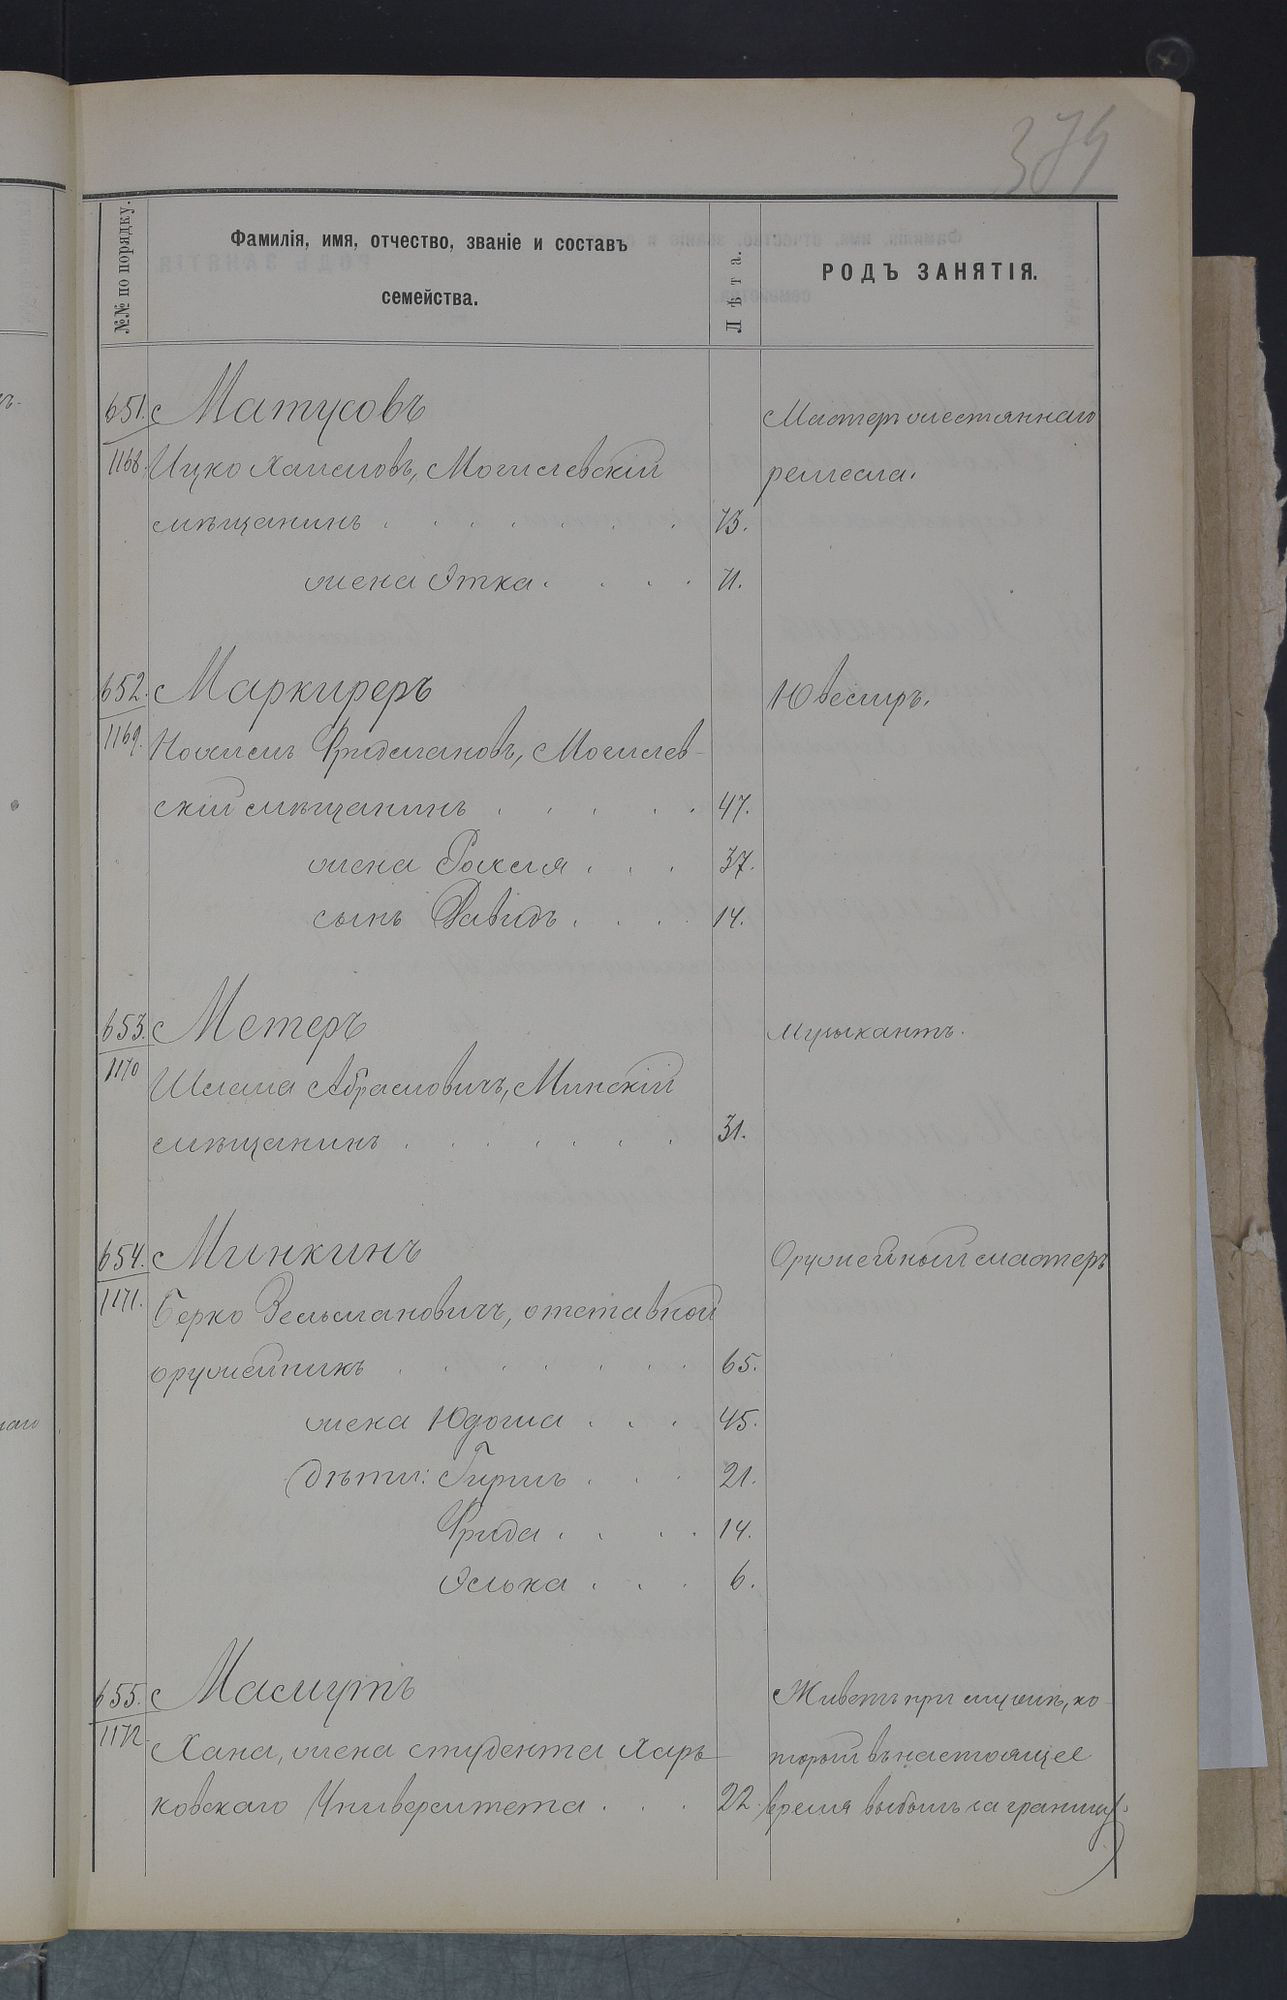 379
№№ по порядку.
Фамилія, имя, отчество, званіе и составъ
семейства.
Лѣта.
РОДЪ ЗАНЯТІЯ.
651. Матусовъ
Мастеръ жестяннаго
1168. Ицко Хаимовъ, Могилевскій
ремесла.
мѣщанинъ . . . . . . . 73.
жена Этка . . . . 71.
652. Маркиреръ
Ювелиръ.
1169. Нохимъ Фридмановъ, Могилев-
скій мѣщанинъ . . . . . 47.
жена Рахля . . . 37.
сынъ Давидъ . . . . 14.
653. Метеръ
Музыкантъ.
1170 Шлема Абрамовичъ, Минскій
мѣщанинъ . . . . . . . 31.
654. Минкинъ
Оружейный мастеръ
1171. Берко Зельмановичъ, отставной
оружейникъ . . . . . . . 65.
жена Юдоша . . . 45.
дѣти: Гиршъ . . . 21.
Фрида . . . . 14.
Элька . . . 6.
655. Масмутъ
Живетъ при мужѣ, ко
1172. Хана, жена студента Харь
торый въ настоящее
ковскаго Университета . . . 22.
время выбылъ за границу.